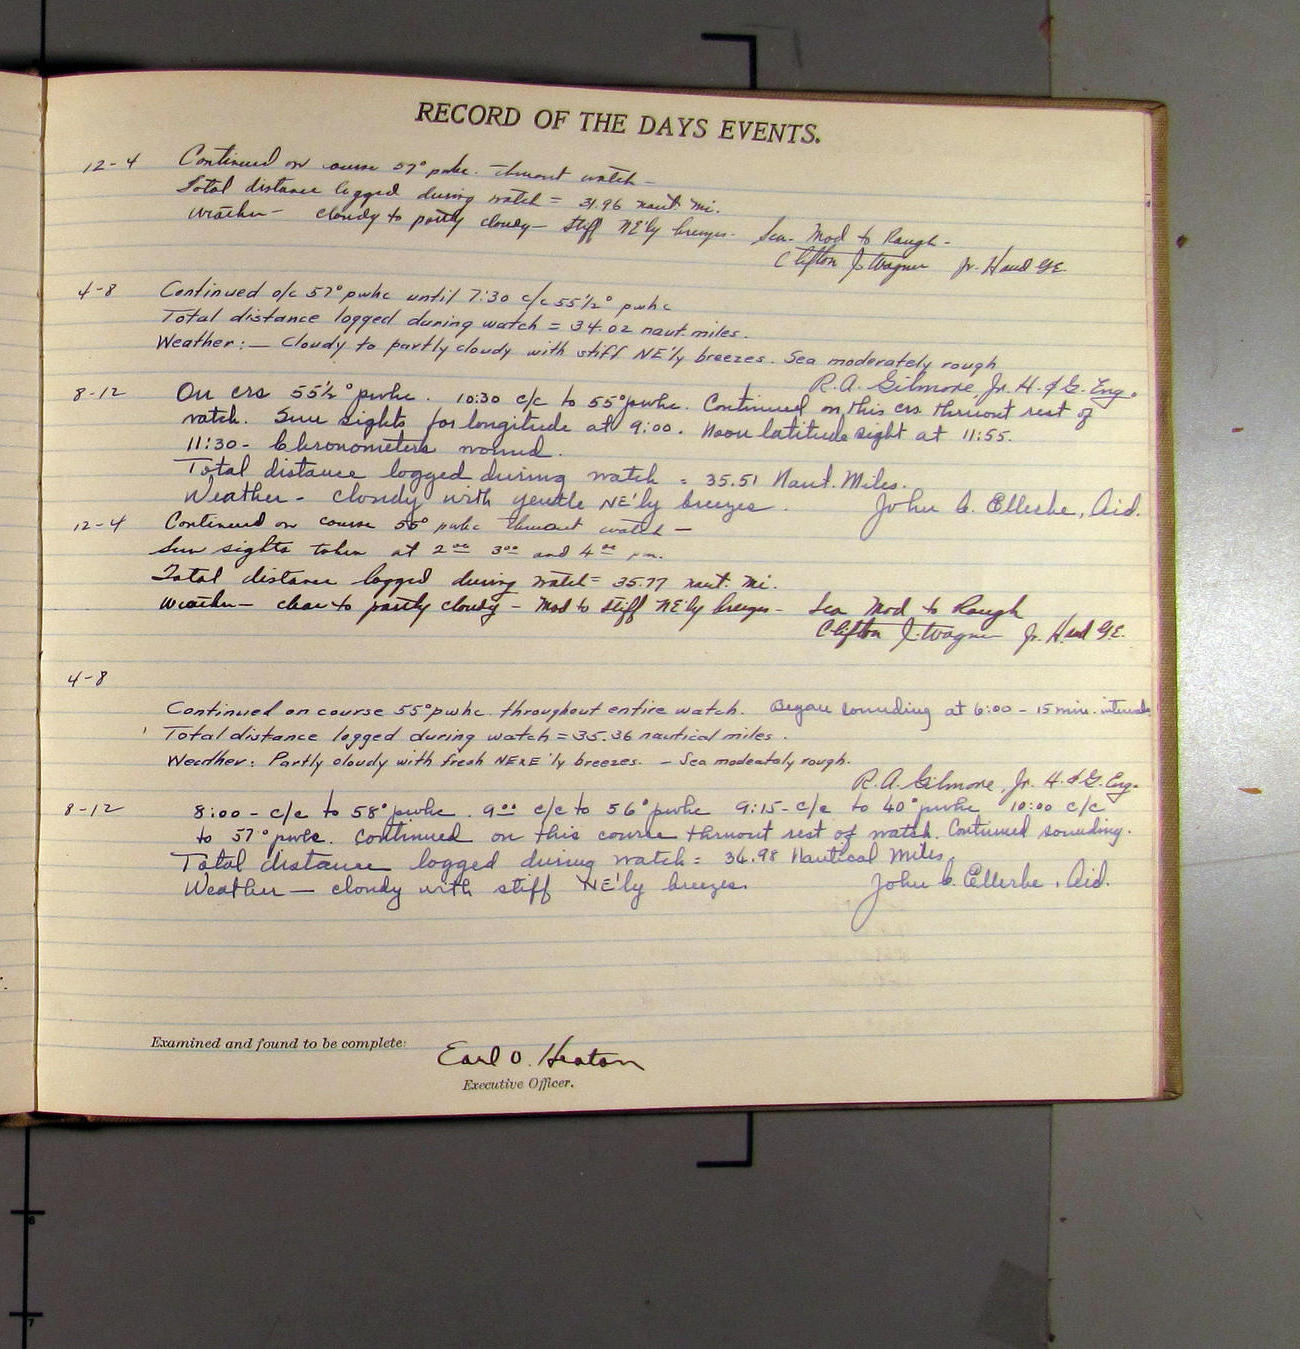 RECORD OF THE DAYS EVENTS.
12-4 Continued on course 57° pwhc. thruout watch -
Total distance logged during watch = 31.96 naut mi.
Weather - cloudy to partly cloudy - stiff NE'ly breezes. Sea - Mod to Rough -
Clifton J. Wagner Jr. H and GE.
4-8 Continued o/c 57° pwhc until 7:30 c/c 55½° pwhc
Total distance logged during watch = 34.02 naut. miles.
Weather: - Cloudy to partly cloudy with stiff NE'ly breezes. Sea moderately rough
R.A. Gilmore, Jr. H. & G. Eng.
8-12 On crs 55½° pwhc. 10:30 c/c to 55° pwhc. Continued on this crs thruout rest of
watch. Sun sights for longitude at 9:00. Noon latitude sight at 11:55.
11:30 - Chronometers wound.
Total distance logged during watch = 35.51 Naut. Miles.
Weather - cloudy with gentle NE'ly breezes. John C. Ellerbe, Aid.
12-4 Continued on course 55° pwhc thruout watch -
Sun sights taken at 2 00 3 00 and 4 00 pm.
Total distance logged during watch = 35.77 naut. mi.
Weather - clear to partly cloudy - Mod to stiff NE'ly breezes - Sea Mod to Rough
Clifton J. Wagner Jr. H and GE.
4-8
Continued on course 55° pwhc. throughout entire watch. Began sounding at 6:00 - 15 min. intervals
Total distance logged during watch = 35.36 nautical miles.
Weather: Partly cloudy with fresh NExE'ly breezes. - Sea modeately rough.
R.A. Gilmore, Jr. H. & G. Eng.
8-12 8:00 - c/c to 58° pwhc. 9 00 c/c to 56° pwhc 9:15 - c/c to 40° pwhc 10:00 c/c
to 57° pwhc. Continued on this course thruout rest of watch. Continued sounding.
Total distance logged during watch = 36.98 Nautical Miles.
Weather - cloudy with stiff NE'ly breezes. John C. Ellerbe, Aid.
Examined and found to be complete:
Earl O. Heaton
Executive Officer.
6
7